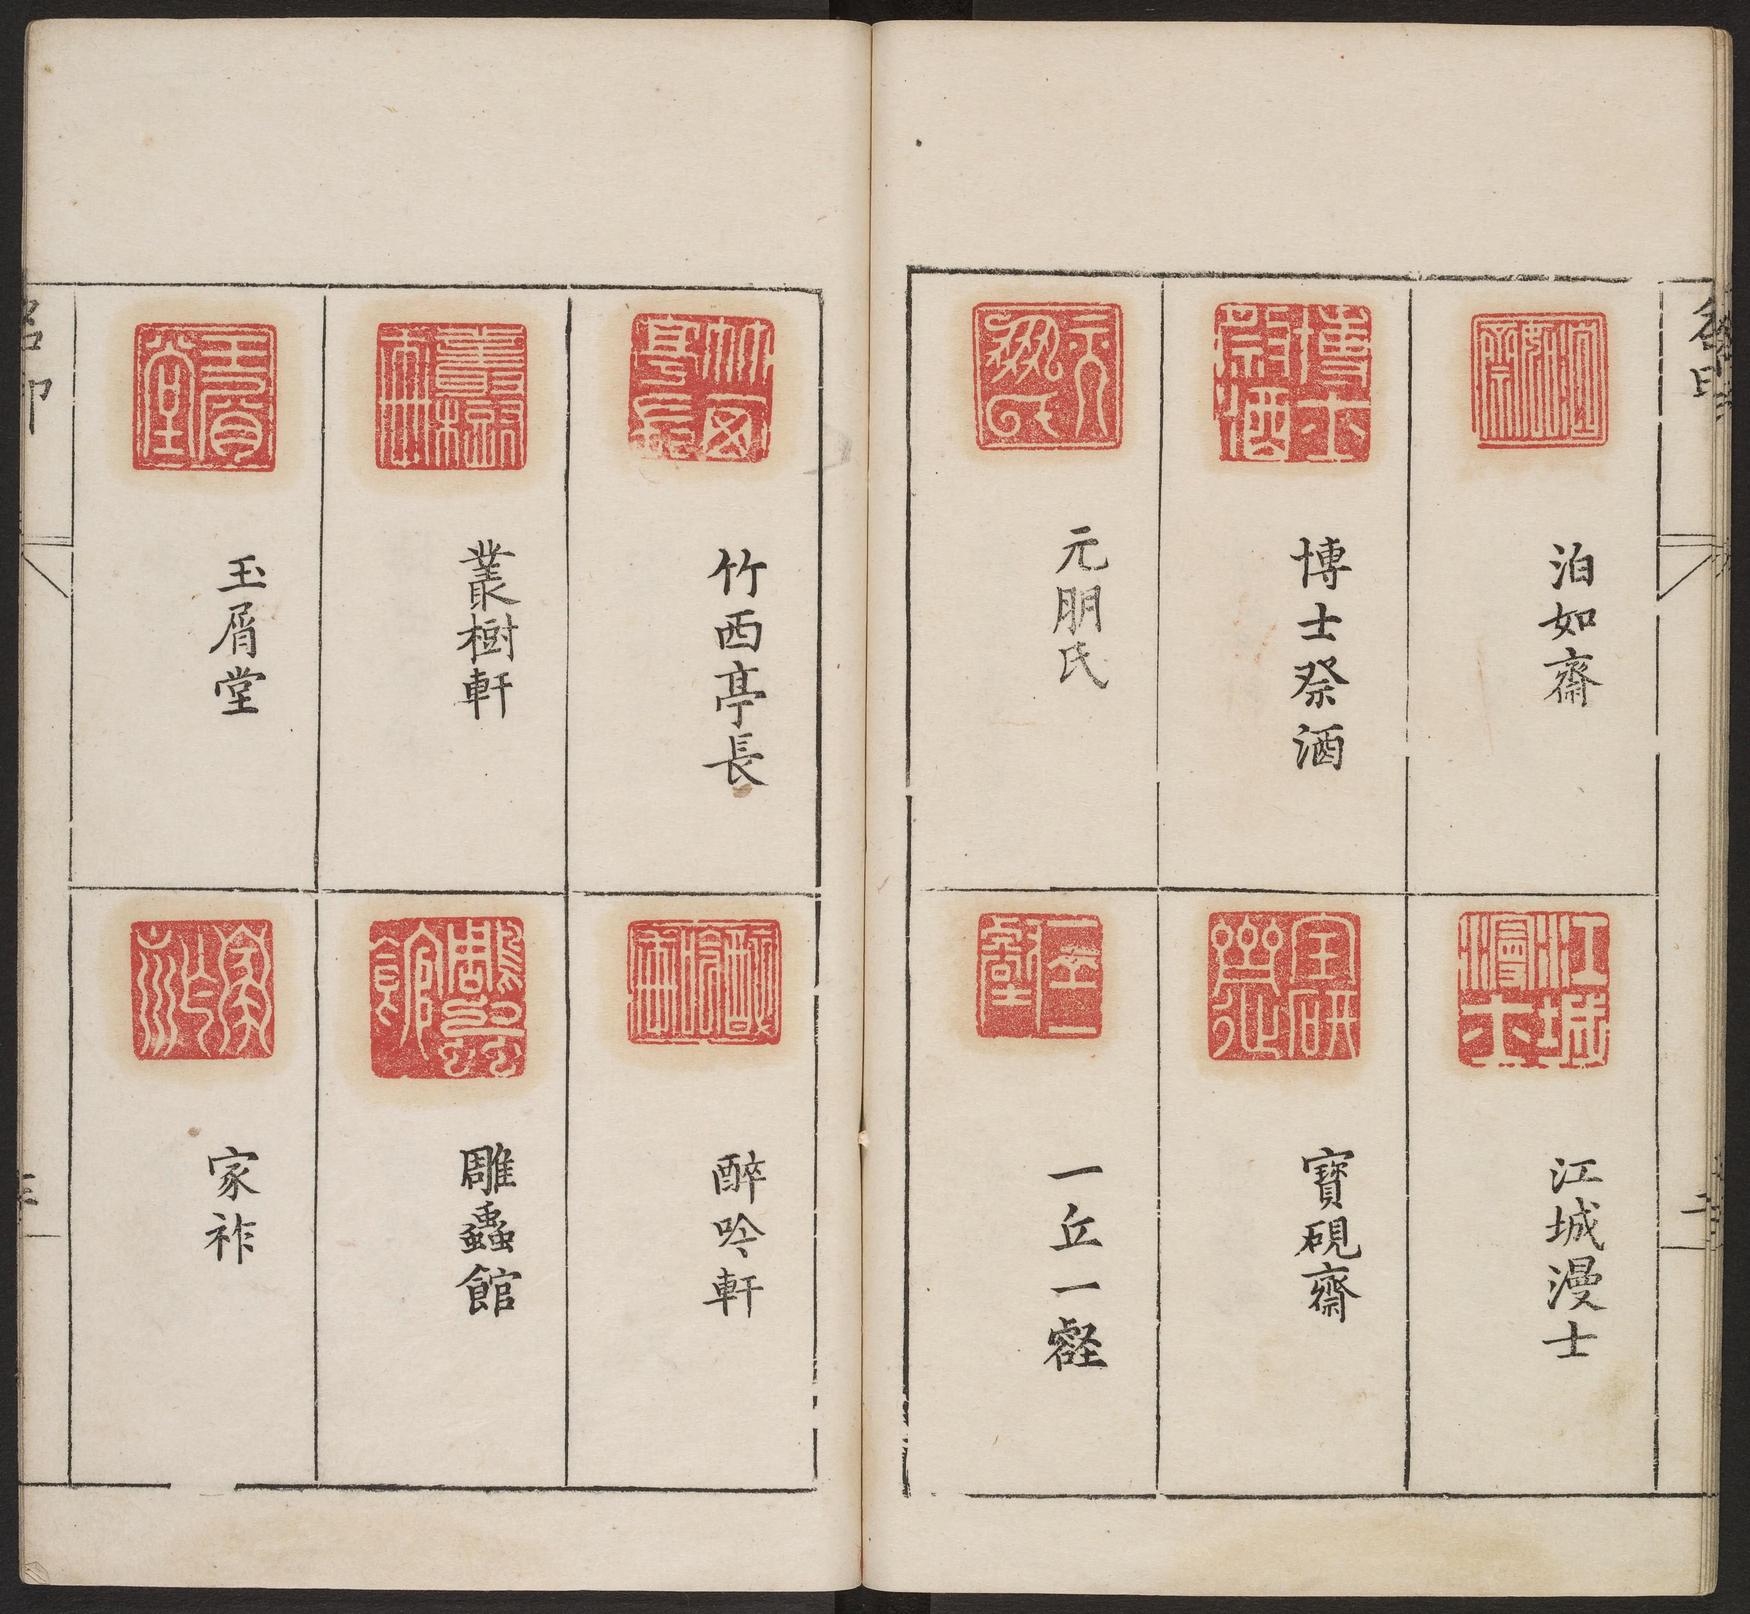 泊如齋
江城漫士
博士祭酒
寶硯齋
元朋氏
一丘一壑
竹西亭長
醉吟軒
叢樹軒
雕蟲館
玉屑堂
家祚